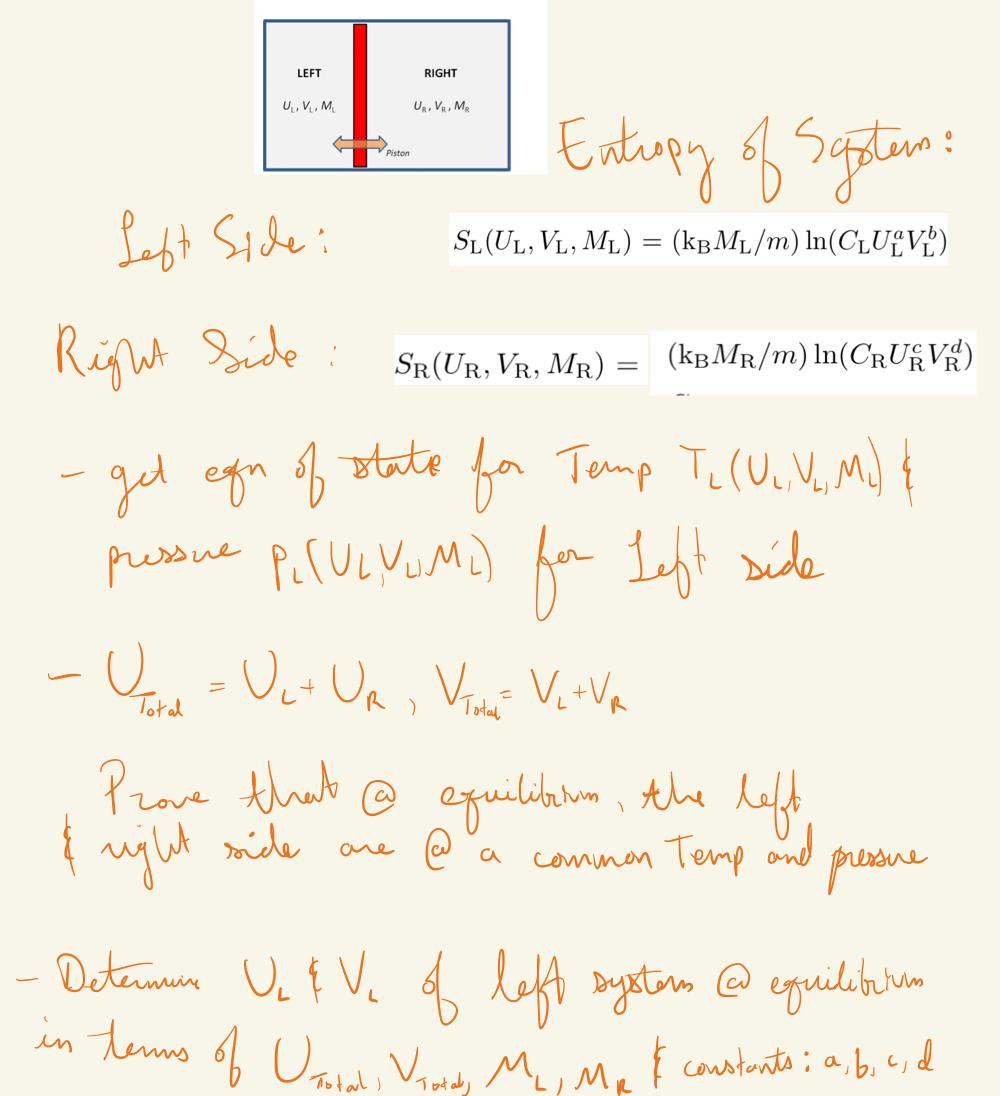 LEFT RIGHT
U_L, V_L, M_L U_R, V_R, M_R
Piston
Entropy of System:
Left Side: S_L(U_L, V_L, M_L) = (k_B M_L/m) ln(C_L U_L^a V_L^b)
Right Side: S_R(U_R, V_R, M_R) = (k_B M_R/m) ln(C_R U_R^c V_R^d)
- get eqn of state for Temp T_L(U_L, V_L, M_L) &
pressure P_L(U_L, V_L, M_L) for Left side
- U_Total = U_L + U_R, V_Total = V_L + V_R
Prove that @ equilibrium, the left
& right side are @ a common Temp and pressure
- Determine U_L & V_L of left system @ equilibrium
in terms of U_Total, V_Total, M_L, M_R & constants: a, b, c, d